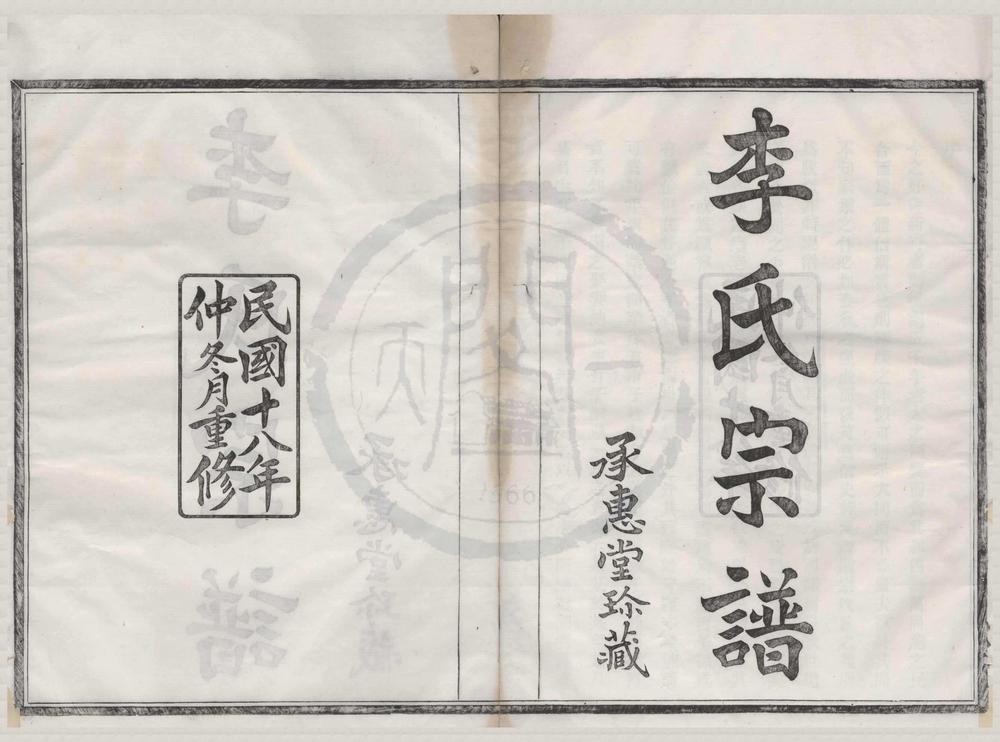 李氏宗譜
承惠堂珍藏
民國十八年
仲冬月重修
1566